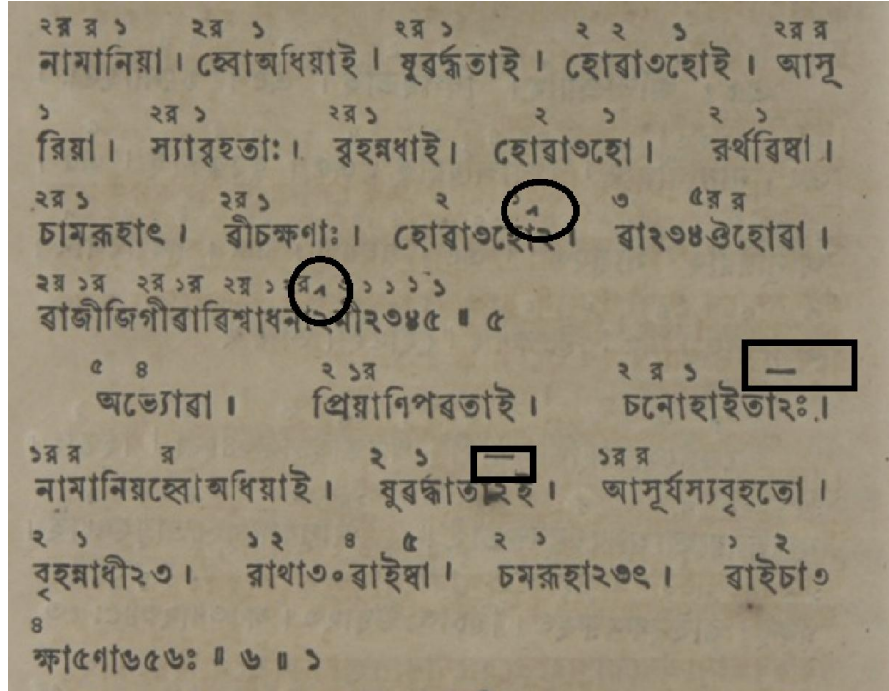 ২র র ১ ২র ১ ২র ১ ২ ২ ১ ২র র
নামানিয়া । হ্বোঅধিয়াই । যুৱর্দ্ধতাই । হোৱা৩হোই । আসূ
১ ২র ১ ২র ১ ২ ১ ২ ১
রিয়া । স্যাবৃহতাঃ । বৃহন্নধাই । হোৱা৩হো । রর্থৱিষা ।
২র ১ ২র ১ ২ ১ ৩ ৫র র
চামরূহাৎ । ৱীচক্ষণাঃ । হোৱা৩হোা২ । ৱা২৩৪ঔহোৱা ।
২র ১র ২র ১র ২র ১ ১ ১ ১ ১
ৱাজীজিগীৱাৱিশ্বাধনা২নী২৩৪৫ ॥ ৫
৫ ৪ ২ ১র ২ র ১ —
অভ্যোৱা । প্রিয়াণিপৱতাই । চনোহাইতা২ঃ ।
১র র র ২ ১ — ১র র
নামানিয়হ্বোঅধিয়াই । যুৱর্দ্ধাতা২ই । আসূর্যস্যবৃহতো ।
২ ১ ১ ২ ৪ ৫ ২ ১ ১ ২
বৃহন্নাধী২৩ । রাথা৩০ৱাইষা । চমরূহা২৩ৎ । ৱাইচা৩
৪
ক্ষা৫ণা৬৫৬ঃ ॥ ৬ ॥ ১